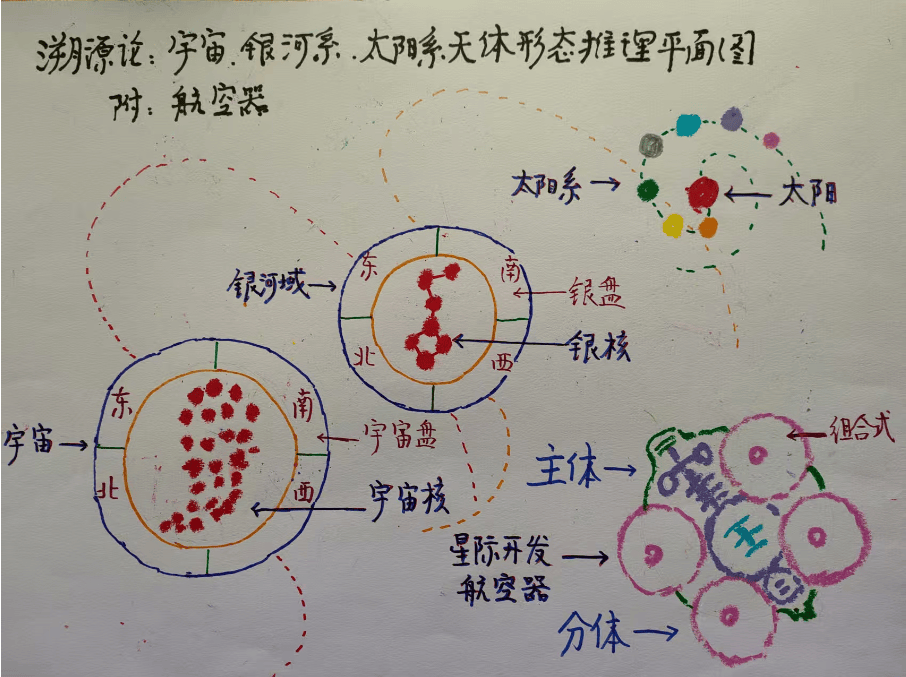 溯源论:宇宙.银河系.太阳系天体形态推理平面图
附:航空器
太阳系
太阳
银河域
东
南
西
北
银盘
银核
宇宙
东
南
西
北
宇宙盘
宇宙核
主体
组合式
星际开发
航空器
分体